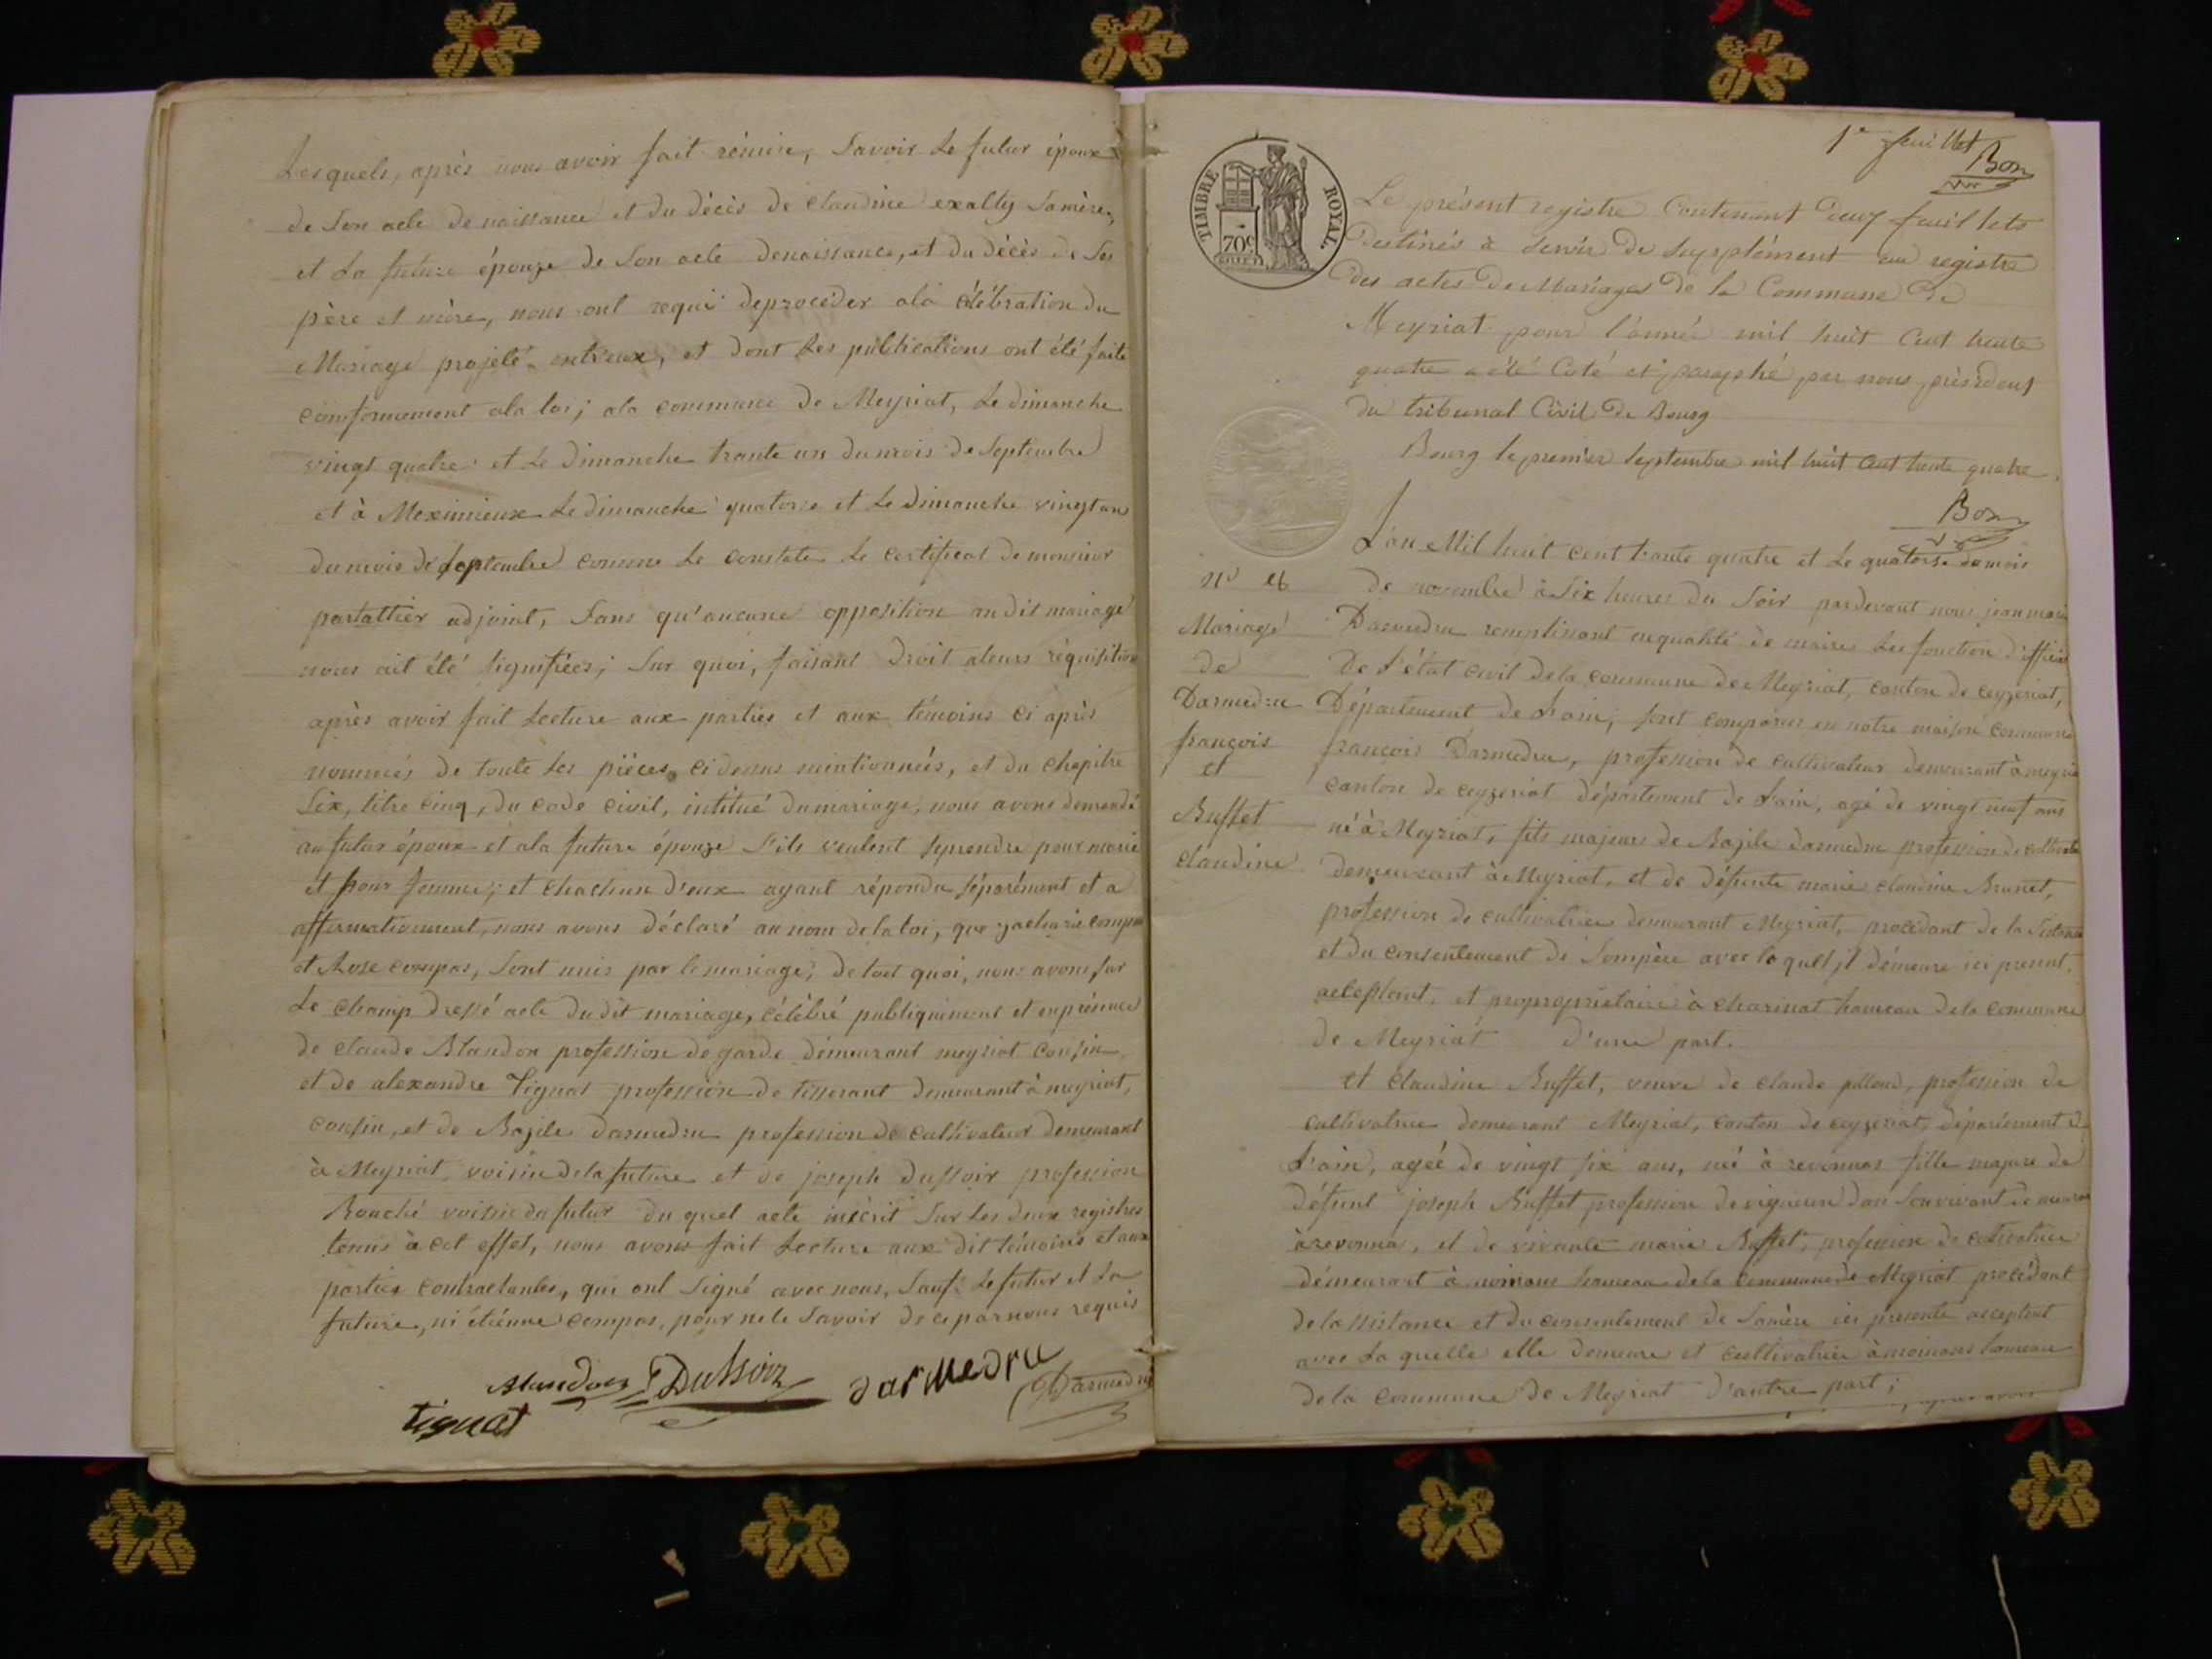 Lesquels, après nous avoir fait remise, Savoir Le futur époux
de Son acte de naissance et du décès de Claudine exally Samère,
et La future épouze de Son acte denaissance, et du décès de Ses
père et mère, nous ont requi deproceder ala célébration du
Mariage projeté entreux, et dont Les publications ont été faite
comformement ala loi; ala commune de Meyriat, Le dimanche
vingt quatre et Le Dimanche trante un dumois de Septembre
et à Meximieux Le dimanche quatorse et Le dimanche vingt un
dumois de Septembre comme Le constate Le certificat de monsieur
portattier adjoint, Sans qu'aucune opposition audit mariage
nous ait été Signifiées; Sur quoi, faisant droit aleurs réquisition
après avoir fait Lecture aux parties et aux témoins ci après
nommés de toute Les pièces, cidessus mentionnées, et du chapitre
Six, titre cinq, du code civil, intitué dumariage, nous avons demandé
au futur époux et ala future épouze S'ils veulent Seprendre pour marie
et pour femme; et chachun d'eux ayant répondu Séparément et a
affirmativement, nous avons déclaré au nom delaloi, que zacharie compas
et Rose compas, Sont unis par le mariage; detout quoi, nous avons Sur
Le champ dressé acte dudit mariage, célébré publiquement et enprésence
de claude Blandon profession de garde demeurant meyriat cousin
et de alexandre Tignat profession de tisserant demeurant à meyriat,
cousin, et de Bazile darmedru profession de cultivateur demeurant
à Meyriat voisin dela future et de joseph dussoir profession
Bouché voisin du futur du quel acte inscrit Sur Les deux registres
tenus à cet effet, nous avons fait Lecture aux dit témoins et aux
parties contractantes, qui ont Signé avec nous, Sauf Le futur et La
future, ni étienne compas, pour nele Savoir de ce par nous requis
Blandon Dussoir darmedru Darmedru
tignat
1er feuillet
Bon
TIMBRE ROYAL
70c
Le présent registre Contenant deux feuillets
destinés à servir de Supplément au registre
des actes de Mariages de la Commune de
Meyriat pour l'année mil huit Cent trente
quatre a été Coté et paraphé par nous président
du tribunal Civil de Bourg
Bourg le premier Septembre mil huit Cent trente quatre
Bon
L'an Mil huit cent trante quatre et Le quatorse dumois
de novembre à Six heures du Soir pardevant nous jean marie
Darmedru remplissant enqualité de maires Les fonction d'officier
De L'état civil dela commune de Meyriat, canton de ceyzeriat,
Département de L'ain; Sont comparus en notre maison commune
françois Darmedru, profession de cultivateur demeurant à meyriat
canton de ceyzeriat département de L'ain, agé de vingt neuf ans
né à Meyriat, fils majeurs de Bazile darmedru profession de cultivateur
demeurant à Meyriat, et de défunte marie claudine Brunet,
profession de cultivatrice demeurant Meyriat, procédant de la Sistance
et du consentement de Sompère avec le quel il démeure ici present,
acceptant, et propropriétaire à charinat hameau dela commune
de Meyriat d'une part.
et claudine Buffet, veuve de claude pilloud, profession de
cultivatrice demeurant Meyriat, canton de ceyzeriat, département de
L'ain, agée de vingt Six ans, né à revonnas fille majure de
défunt joseph Buffet profession de vigneron
àrevonna, et de vivante marie Buffet, profession de cultivatrice
démeurant à hameau dela commune de Meyriat procédant
delassistance et du consentement de Samère ici presente acceptant
avec La quelle elle demeure et cultivatrice hameau
dela commune de Meyriat d'autre part;
N°
Mariage
de
Darmedru
françois
et
Buffet
claudine